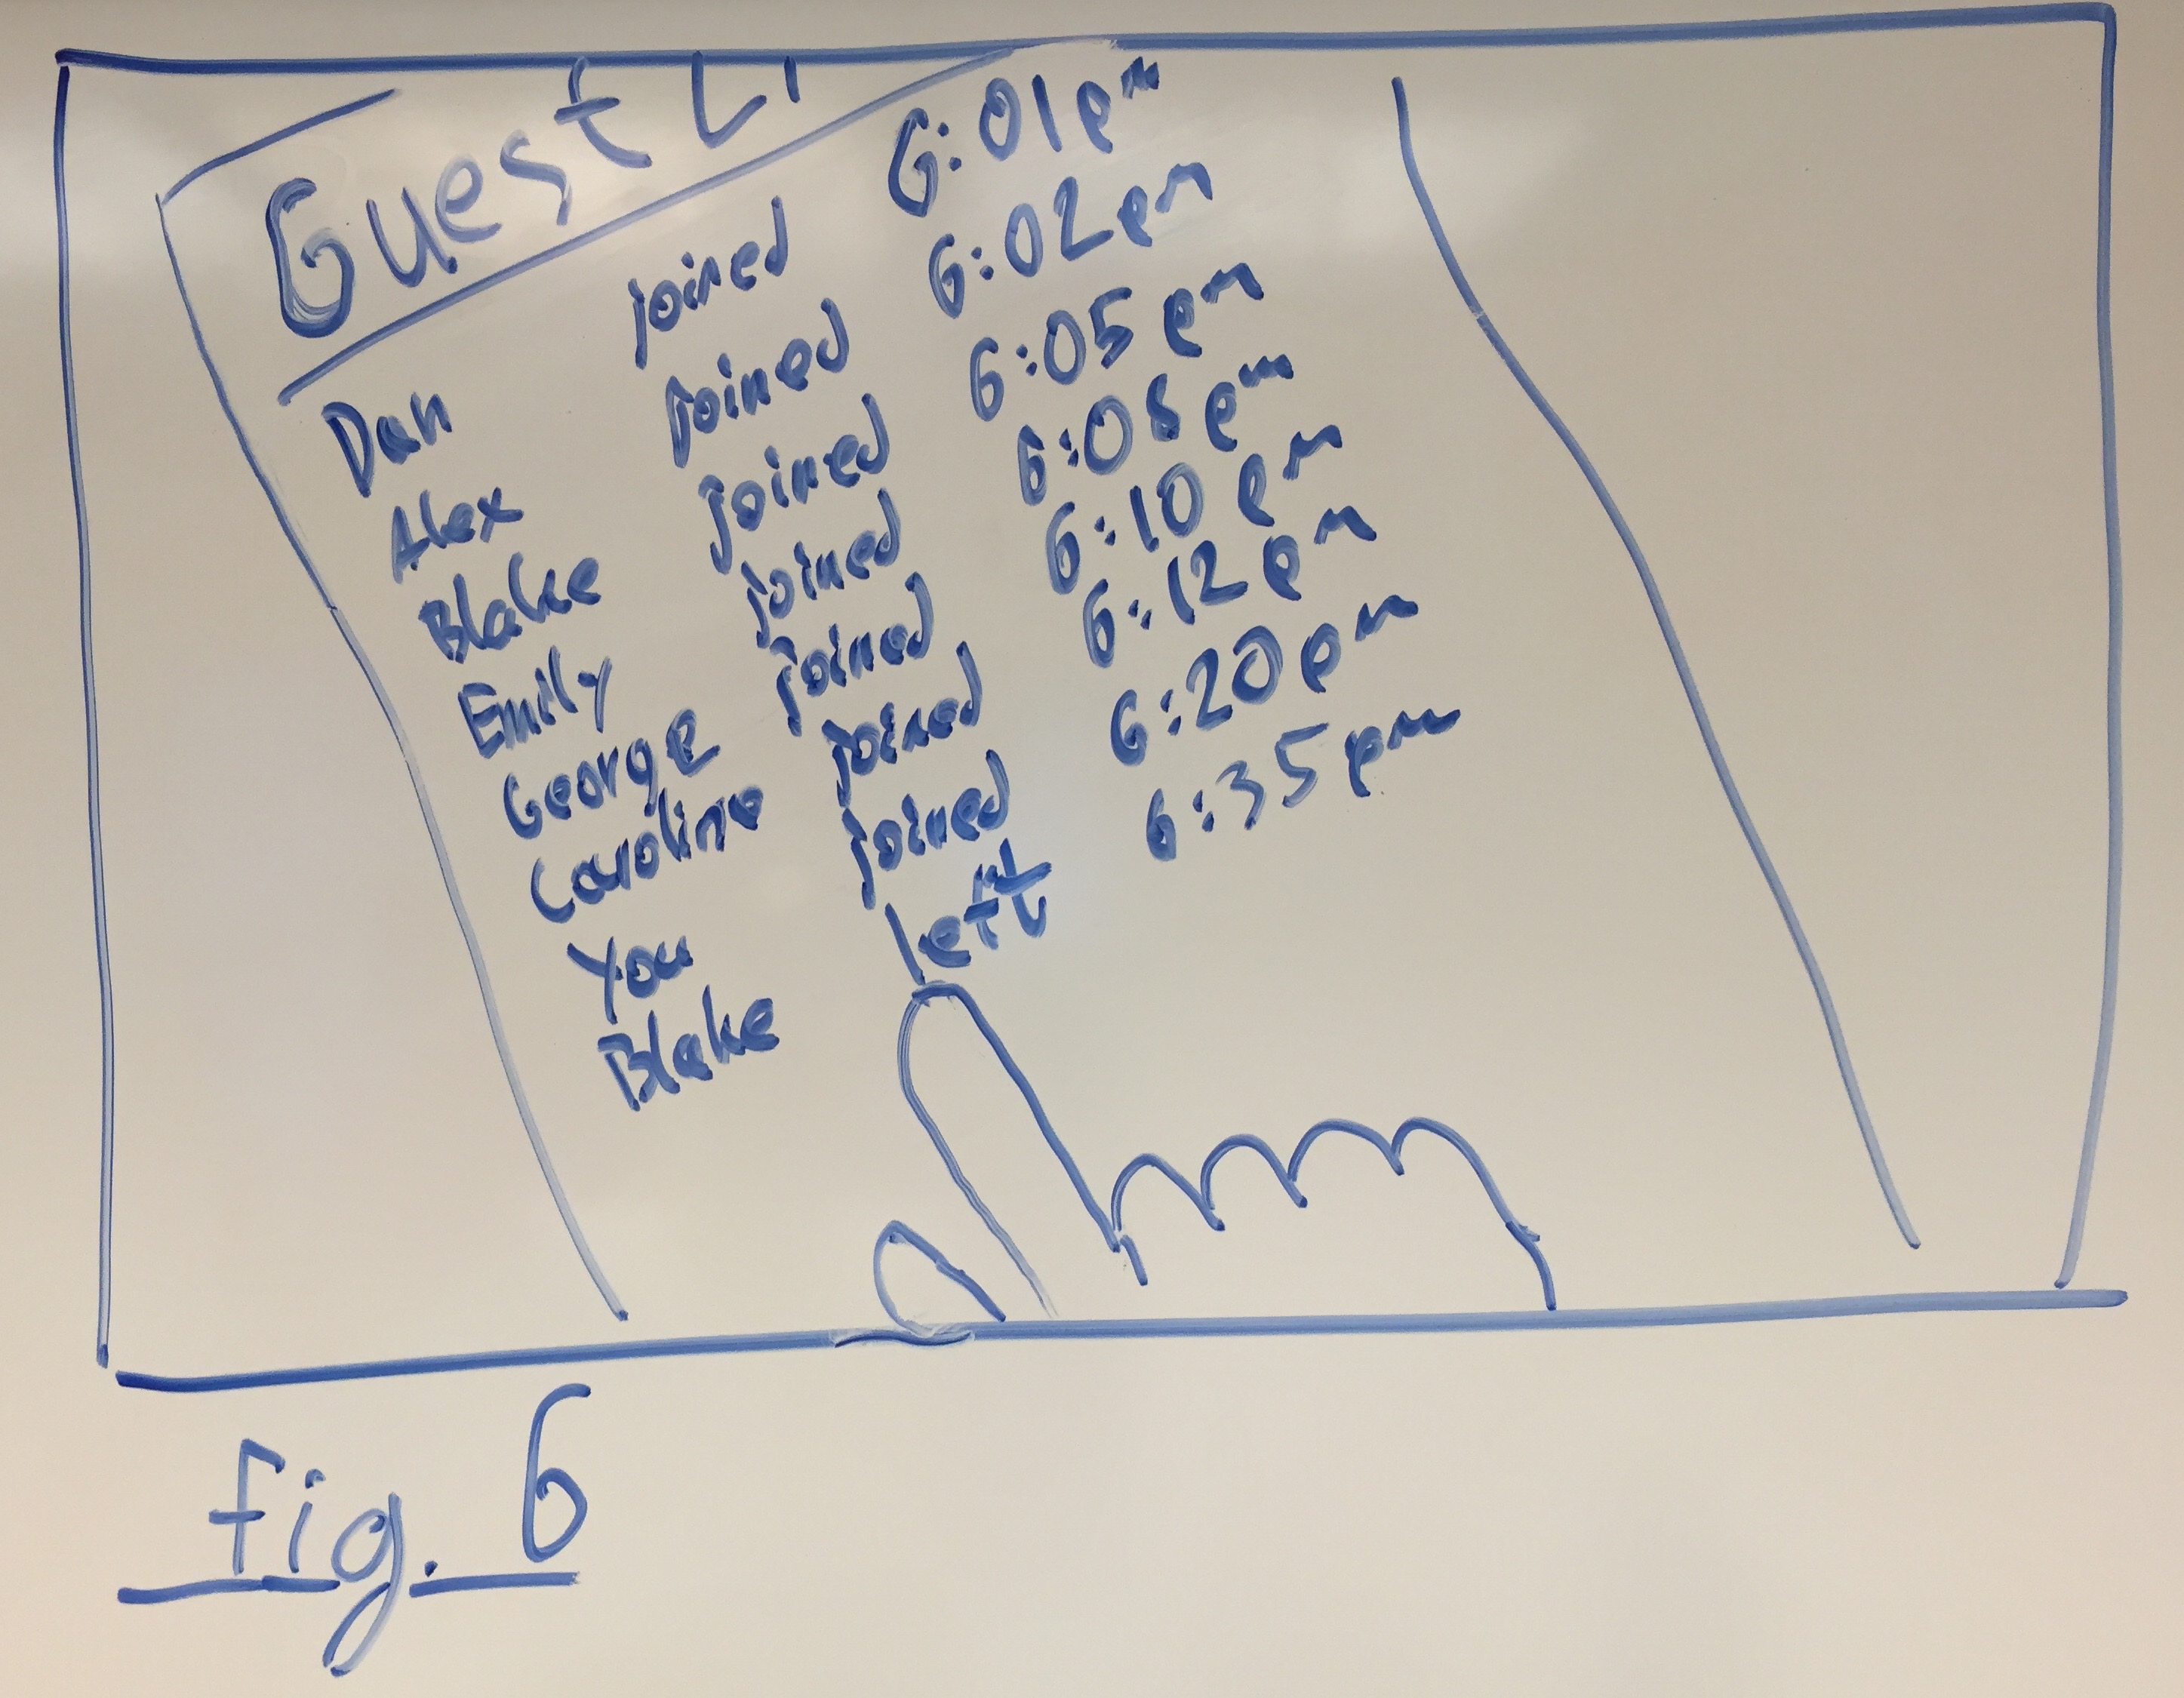 Guest Li
Dan joined 6:01pm
Alex joined 6:02pm
Blake joined 6:05pm
Emily joined pm
George joined 6:10pm
Caroline joined 6:12pm
You joined 6:20pm
Blake left 6:35pm
fig. 6